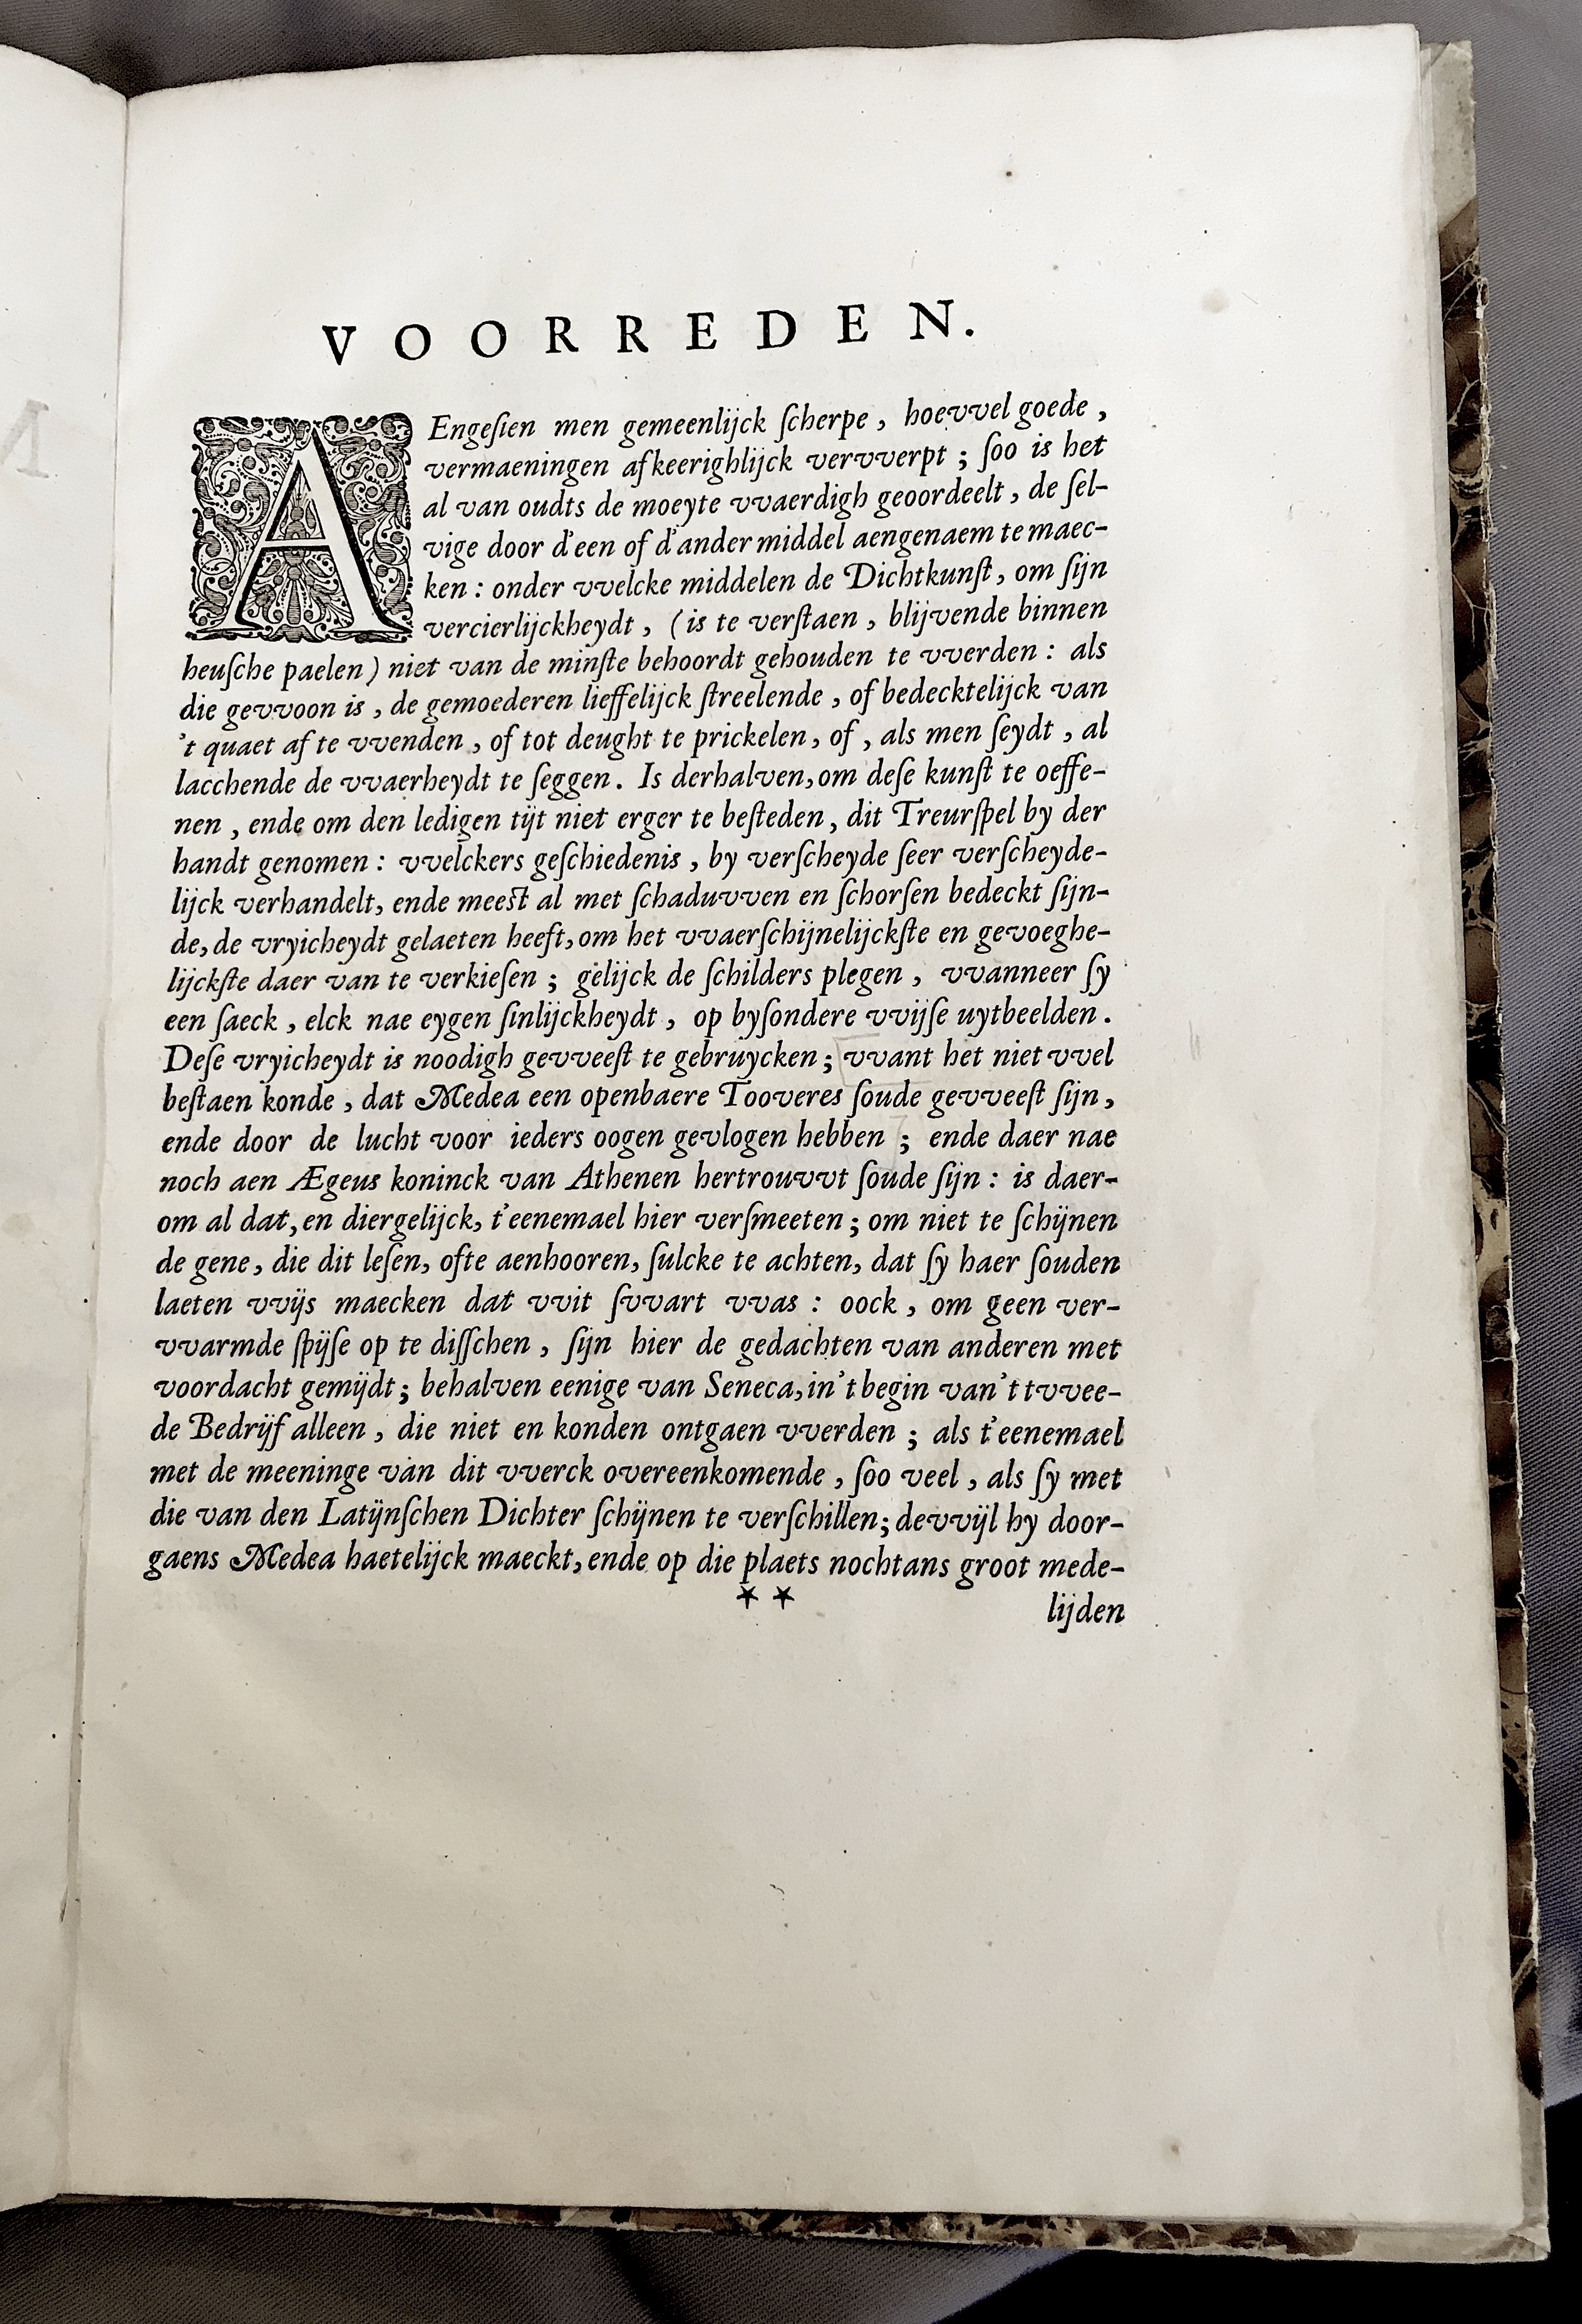 VOORREDEN.
AEngeſien men gemeenlijck ſcherpe, hoevvel goede,
vermaeningen afkeerighlijck vervverpt; ſoo is het
al van oudts de moeyte vvaerdigh geoordeelt, de ſel-
vige door d'een of d'ander middel aengenaem te maec-
ken: onder vvelcke middelen de Dichtkunſt, om ſijn
vercierlijckheydt, (is te verſtaen, blijvende binnen
heuſche paelen) niet van de minſte behoordt gehouden te vverden: als
die gevvoon is, de gemoederen lieffelijck ſtreelende, of bedecktelijck van
't quaet af te vvenden, of tot deught te prickelen, of, als men ſeydt, al
lacchende de vvaerheydt te ſeggen. Is derhalven, om deſe kunſt te oeffe-
nen, ende om den ledigen tijt niet erger te beſteden, dit Treurſpel by der
handt genomen: vvelckers geſchiedenis, by verſcheyde ſeer verſcheyde-
lijck verhandelt, ende meeſt al met ſchaduvven en ſchorſen bedeckt ſijn-
de, de vryicheydt gelaeten heeft, om het vvaerſchijnelijckſte en gevoeghe-
lijckſte daer van te verkieſen; gelijck de ſchilders plegen, vvanneer ſy
een ſaeck, elck nae eygen ſinlijckheydt, op byſondere vvijſe uytbeelden.
Deſe vryicheydt is noodigh gevveeſt te gebruycken; vvant het niet vvel
beſtaen konde, dat Medea een openbaere Tooveres ſoude gevveeſt ſijn,
ende door de lucht voor ieders oogen gevlogen hebben; ende daer nae
noch aen Ægeus koninck van Athenen hertrouvvt ſoude ſijn: is daer-
om al dat, en diergelijck, t'eenemael hier verſmeeten; om niet te ſchijnen
de gene, die dit leſen, ofte aenhooren, ſulcke te achten, dat ſy haer ſouden
laeten vvijs maecken dat vvit ſvvart vvas: oock, om geen ver-
vvarmde ſpijſe op te diſſchen, ſijn hier de gedachten van anderen met
voordacht gemijdt; behalven eenige van Seneca, in't begin van't tvvee-
de Bedrijf alleen, die niet en konden ontgaen vverden; als t'eenemael
met de meeninge van dit vverck overeenkomende, ſoo veel, als ſy met
die van den Latijnſchen Dichter ſchijnen te verſchillen; devvijl hy door-
gaens Medea haetelijck maeckt, ende op die plaets nochtans groot mede-
* *
lijden